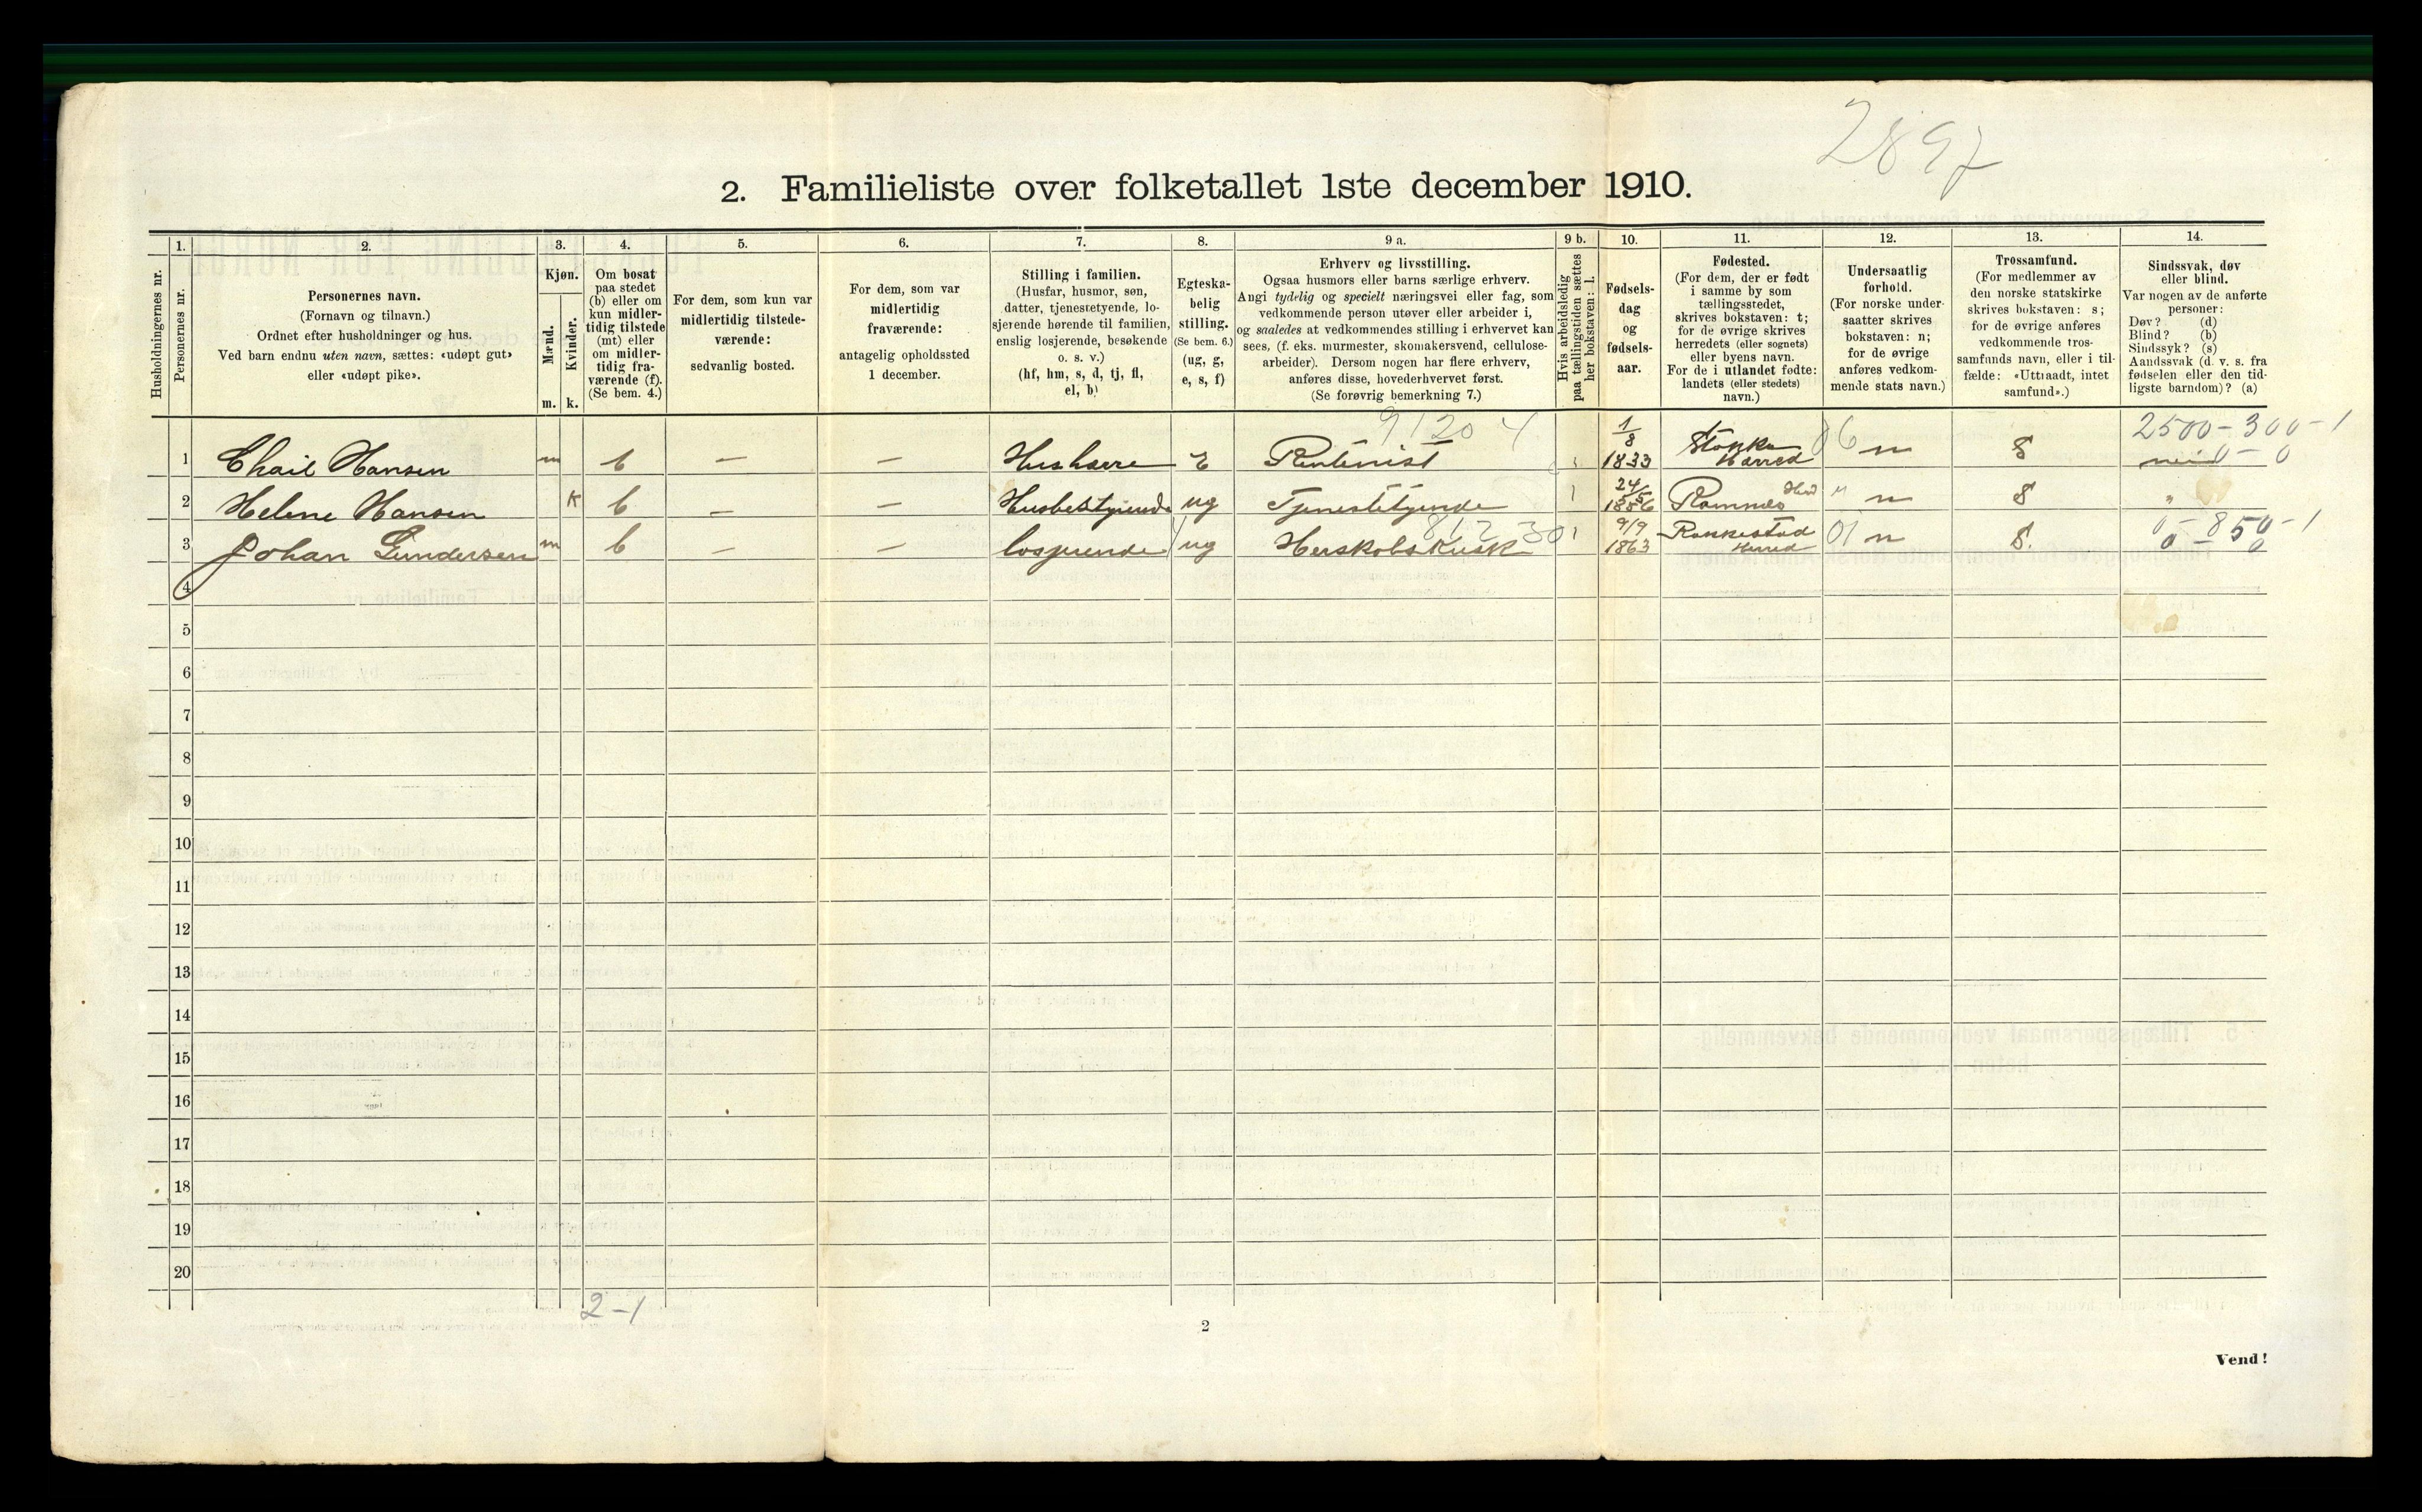 2897
2. Familieliste over folketallet 1ste december 1910.
Husholdningernes nr.
1.
Personernes nr.
2.
Personernes navn.
(Fornavn og tilnavn.)
Ordnet efter husholdninger og hus.
Ved barn endnu uten navn, sættes: «udøpt gut»
eller «udøpt pike».
3.
Kjøn.
Mænd.
Kvinder.
m. k.
4.
Om bosat
paa stedet
(b) eller om
kun midler-
tidig tilstede
(mt) eller
om midler-
tidig fra-
værende (f).
(Se bem. 4.)
5.
For dem, som kun var
midlertidig tilstede-
værende:
sedvanlig bosted.
6.
For dem, som var
midlertidig
fraværende:
antagelig opholdssted
1 december.
7.
Stilling i familien.
(Husfar, husmor, søn,
datter, tjenestetyende, lo-
sjerende hørende til familien,
enslig losjerende, besøkende
o. s. v.)
(hf, hm, s, d, tj, fl,
el, b)
8.
Egteska-
belig
stilling.
(Se bem. 6.)
(ug, g,
e, s, f)
9 a.
Erhverv og livsstilling.
Ogsaa husmors eller barns særlige erhverv.
Angi tydelig og specielt næringsvei eller fag, som
vedkommende person utøver eller arbeider i,
og saaledes at vedkommendes stilling i erhvervet kan
sees, (f. eks. murmester, skomakersvend, cellulose-
arbeider). Dersom nogen har flere erhverv,
anføres disse, hovederhvervet først.
(Se forøvrig bemerkning 7.)
9 b.
Hvis arbeidsledig
paa tællingstiden sættes
her bokstaven: l.
10.
Fødsels-
dag
og
fødsels-
aar.
11.
Fødested.
(For dem, der er født
i samme by som
tællingsstedet,
skrives bokstaven: t;
for de øvrige skrives
herredets (eller sognets)
eller byens navn.
For de i utlandet fødte:
landets (eller stedets)
navn.)
12.
Undersaatlig
forhold.
(For norske under-
saatter skrives
bokstaven: n;
for de øvrige
anføres vedkom-
mende stats navn.)
13.
Trossamfund.
(For medlemmer av
den norske statskirke
skrives bokstaven: s;
for de øvrige anføres
vedkommende tros-
samfunds navn, eller i til-
fælde: «Uttraadt, intet
samfund».)
14.
Sindssvak, døv
eller blind.
Var nogen av de anførte
personer:
Døv? (d)
Blind? (b)
Sindssyk? (s)
Aandssvak (d. v. s. fra
fødselen eller den tid-
ligste barndom)? (a)
9120 4 2500-300-1
1 Chail Hansen m b — — Husherre E Rentenist 1/8 1833 Stokke Herred 06 n S nei 0-0
2 Helene Hansen K b — — Husbestyrende ug Tjenestetyende 24/5 1856 Ramnes Herd " n S "
3 Johan Gundersen m b — — losjerende ug Herskabskusk 812 30 9/9 1863 Herred 01 n S. 0-850-1
0-0
4
5
6
7
8
9
10
11
12
13
14
15
16
17
18
19
20
2-1
2
Vend!